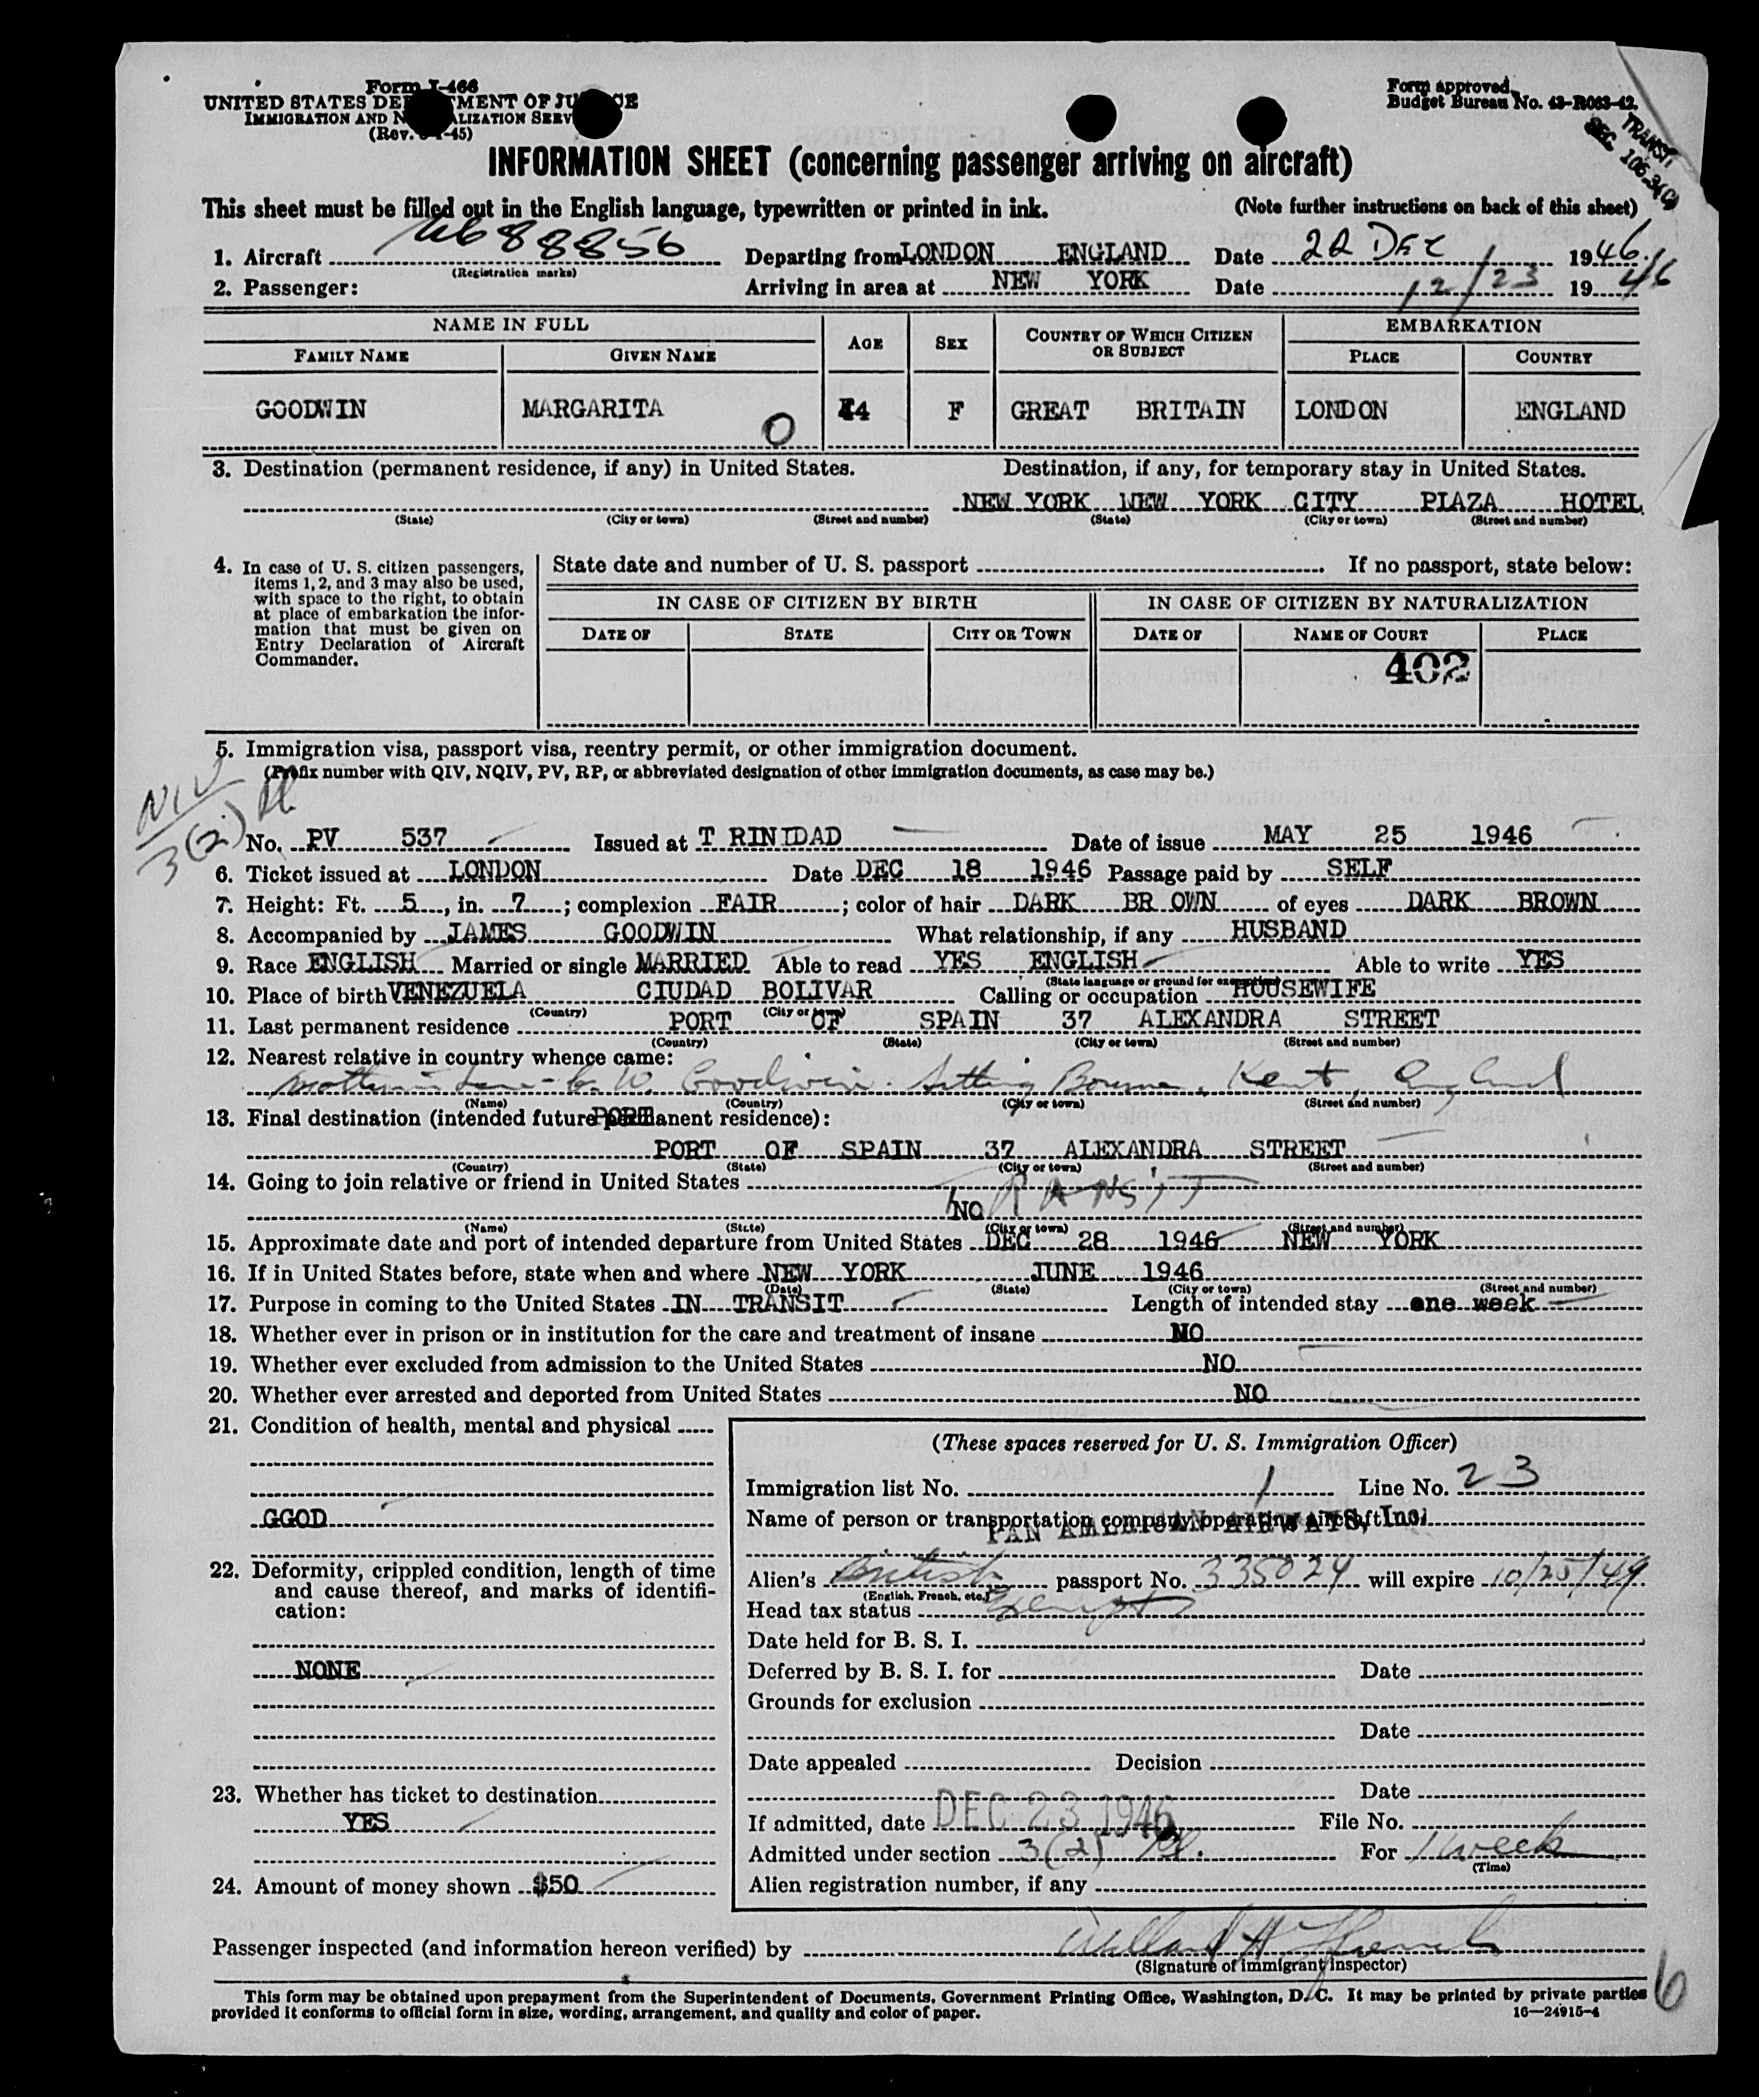 Form I-466
UNITED STATES DEPARTMENT OF JUSTICE
IMMIGRATION AND NATURALIZATION SERV
(Rev. -45)
Form approved.
Budget Bureau No. 43-R063-42.
TRANSIT
SEC. 106.3(C)
INFORMATION SHEET (concerning passenger arriving on aircraft)
This sheet must be filled out in the English language, typewritten or printed in ink. (Note further instructions on back of this sheet)
1. Aircraft 88856 Departing from LONDON ENGLAND Date 22 DEC 1946
(Registration marks)
2. Passenger: Arriving in area at NEW YORK Date 12/23 1946
NAME IN FULL
EMBARKATION
FAMILY NAME GIVEN NAME AGE SEX COUNTRY OF WHICH CITIZEN OR SUBJECT PLACE COUNTRY
GOODWIN MARGARITA O 44 F GREAT BRITAIN LONDON ENGLAND
3. Destination (permanent residence, if any) in United States. Destination, if any, for temporary stay in United States.
NEW YORK NEW YORK CITY PLAZA HOTEL
(State) (City or town) (Street and number) (State) (City or town) (Street and number)
4. In case of U. S. citizen passengers,
items 1, 2, and 3 may also be used,
with space to the right, to obtain
at place of embarkation the infor-
mation that must be given on
Entry Declaration of Aircraft
Commander.
State date and number of U. S. passport If no passport, state below:
IN CASE OF CITIZEN BY BIRTH IN CASE OF CITIZEN BY NATURALIZATION
DATE OF STATE CITY OR TOWN DATE OF NAME OF COURT PLACE
402
5. Immigration visa, passport visa, reentry permit, or other immigration document.
(Prefix number with QIV, NQIV, PV, RP, or abbreviated designation of other immigration documents, as case may be.)
NIV
3(2)
No. PV 537 Issued at T RINIDAD Date of issue MAY 25 1946
6. Ticket issued at LONDON Date DEC 18 1946 Passage paid by SELF
7. Height: Ft. 5, in. 7; complexion FAIR; color of hair DARK BR OWN of eyes DARK BROWN
8. Accompanied by JAMES GOODWIN What relationship, if any HUSBAND
9. Race ENGLISH Married or single MARRIED Able to read YES ENGLISH Able to write YES
(State language or ground for exemption)
10. Place of birth VENEZUELA CIUDAD BOLIVAR Calling or occupation HOUSEWIFE
(Country) (City or town)
11. Last permanent residence PORT OF SPAIN 37 ALEXANDRA STREET
(Country) (State) (City or town) (Street and number)
12. Nearest relative in country whence came:
Mother in Law - C. W. Goodwin. Sitting Bourne, Kent, England
(Name) (Country) (City or town) (Street and number)
13. Final destination (intended future permanent residence):
PORT OF SPAIN 37 ALEXANDRA STREET
(Country) (State) (City or town) (Street and number)
14. Going to join relative or friend in United States
NO TRANSIT
(Name) (State) (City or town) (Street and number)
15. Approximate date and port of intended departure from United States DEC 28 1946 NEW YORK
16. If in United States before, state when and where NEW YORK JUNE 1946
(Date) (State) (City or town) (Street and number)
17. Purpose in coming to the United States IN TRANSIT Length of intended stay one week
18. Whether ever in prison or in institution for the care and treatment of insane NO
19. Whether ever excluded from admission to the United States NO
20. Whether ever arrested and deported from United States NO
21. Condition of health, mental and physical
GGOD
22. Deformity, crippled condition, length of time
and cause thereof, and marks of identifi-
cation:
NONE
23. Whether has ticket to destination
YES
24. Amount of money shown $50
(These spaces reserved for U. S. Immigration Officer)
Immigration list No. 1 Line No. 23
Name of person or transportation company operating aircraft
PAN AMERICAN AIRWAYS, Inc.
Alien's British passport No. 335024 will expire 10/25/49
(English, French, etc.)
Head tax status Exempt
Date held for B. S. I.
Deferred by B. S. I. for Date
Grounds for exclusion
Date
Date appealed Decision
Date
If admitted, date DEC 23 1946 File No.
Admitted under section 3(2) For 1 week
(Time)
Alien registration number, if any
Passenger inspected (and information hereon verified) by Willard H.
(Signature of immigrant inspector)
This form may be obtained upon prepayment from the Superintendent of Documents, Government Printing Office, Washington, D. C. It may be printed by private parties
provided it conforms to official form in size, wording, arrangement, and quality and color of paper. 16—24915-4
6